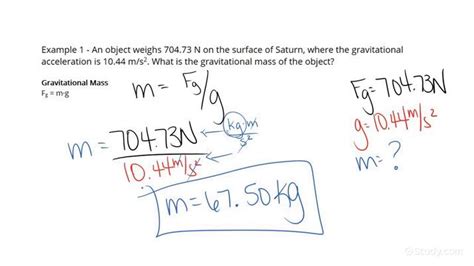 Example 1 - An object weighs 704.73 N on the surface of Saturn, where the gravitational
acceleration is 10.44 m/s². What is the gravitational mass of the object?
Gravitational Mass
Fg = m·g
m = Fg/g
m = 704.73N / 10.44 m/s²
kg·m/s²
m = 67.50 kg
Fg = 704.73N
g = 10.44 m/s²
m = ?
Study.com